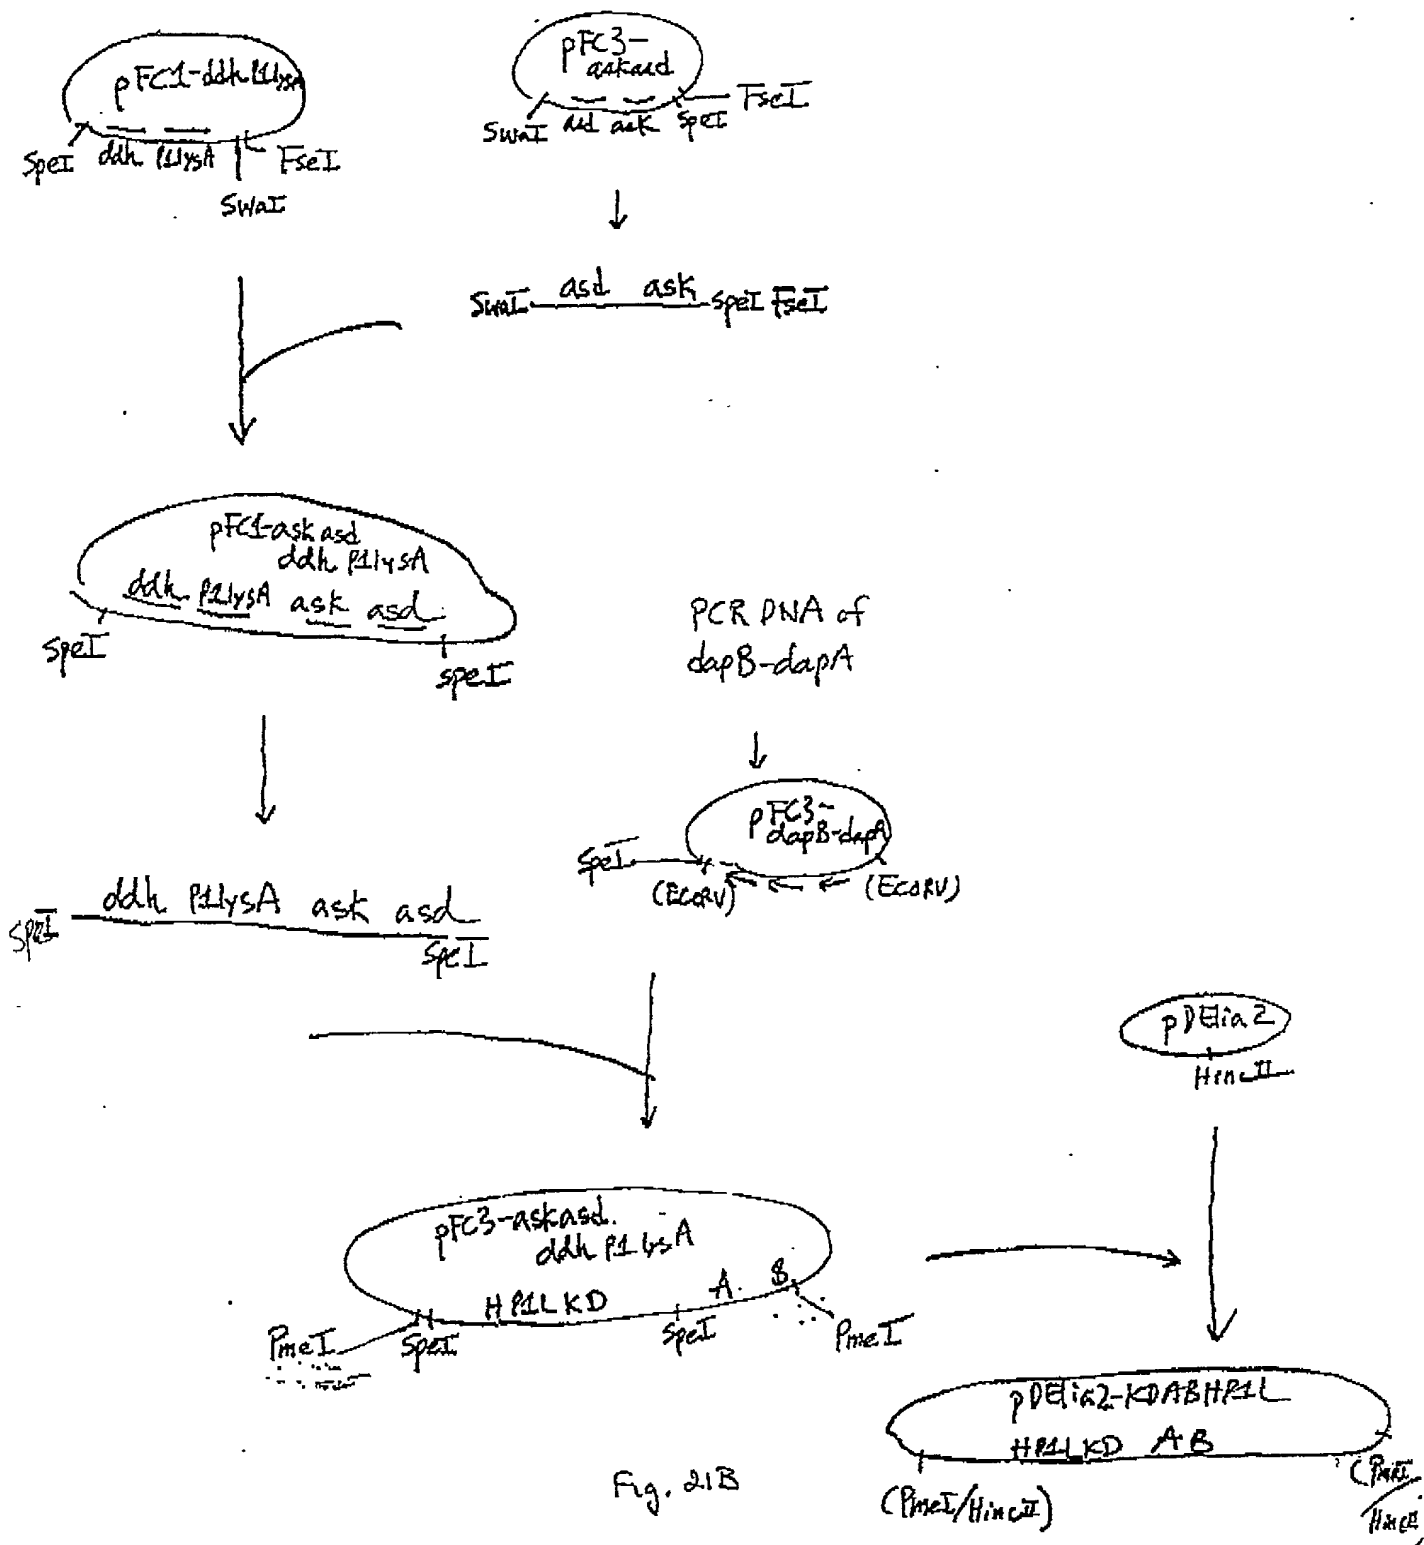 pFC1-ddh P1lysA
SpeI
ddh P1lysA
FseI
SwaI
pFC3-
askasd
SwaI
asd ask
SpeI
FseI
SwaI asd ask SpeI FseI
pFC1-ask asd
ddh P1lysA
ddh P1lysA ask asd
SpeI
SpeI
PCR DNA of
dapB-dapA
pFC3-
dapB-dapA
SpeI
(EcoRV)
(EcoRV)
ddh P1lysA ask asd
SpeI
SpeI
pDElia2
HincII
pFC3-askasd
ddh P1lysA
HP1LKD
A B
PmeI
SpeI
SpeI
PmeI
pDElia2-KDABHP1L
HP1LKD AB
(PmeI/HincII)
(PmeI/
HincII)
Fig. 21B